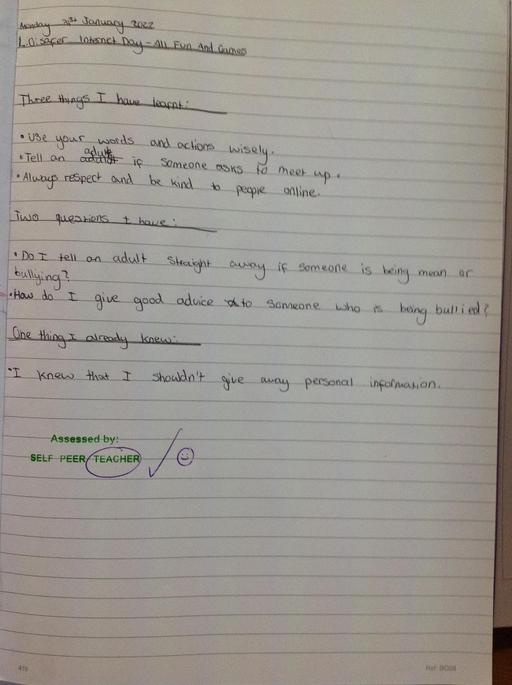 Monday 31st January 2022
L.O: Safer Internet Day - All Fun And Games
Three things I have learnt:
• Use your words and actions wisely.
• Tell an adult if someone asks to meet up.
• Always respect and be kind to people online.
Two questions I have:
• Do I tell an adult straight away if someone is being mean or
bullying?
• How do I give good advice to someone who is being bullied?
One thing I already knew:
• I knew that I shouldn't give away personal information.
Assessed by:
SELF PEER TEACHER